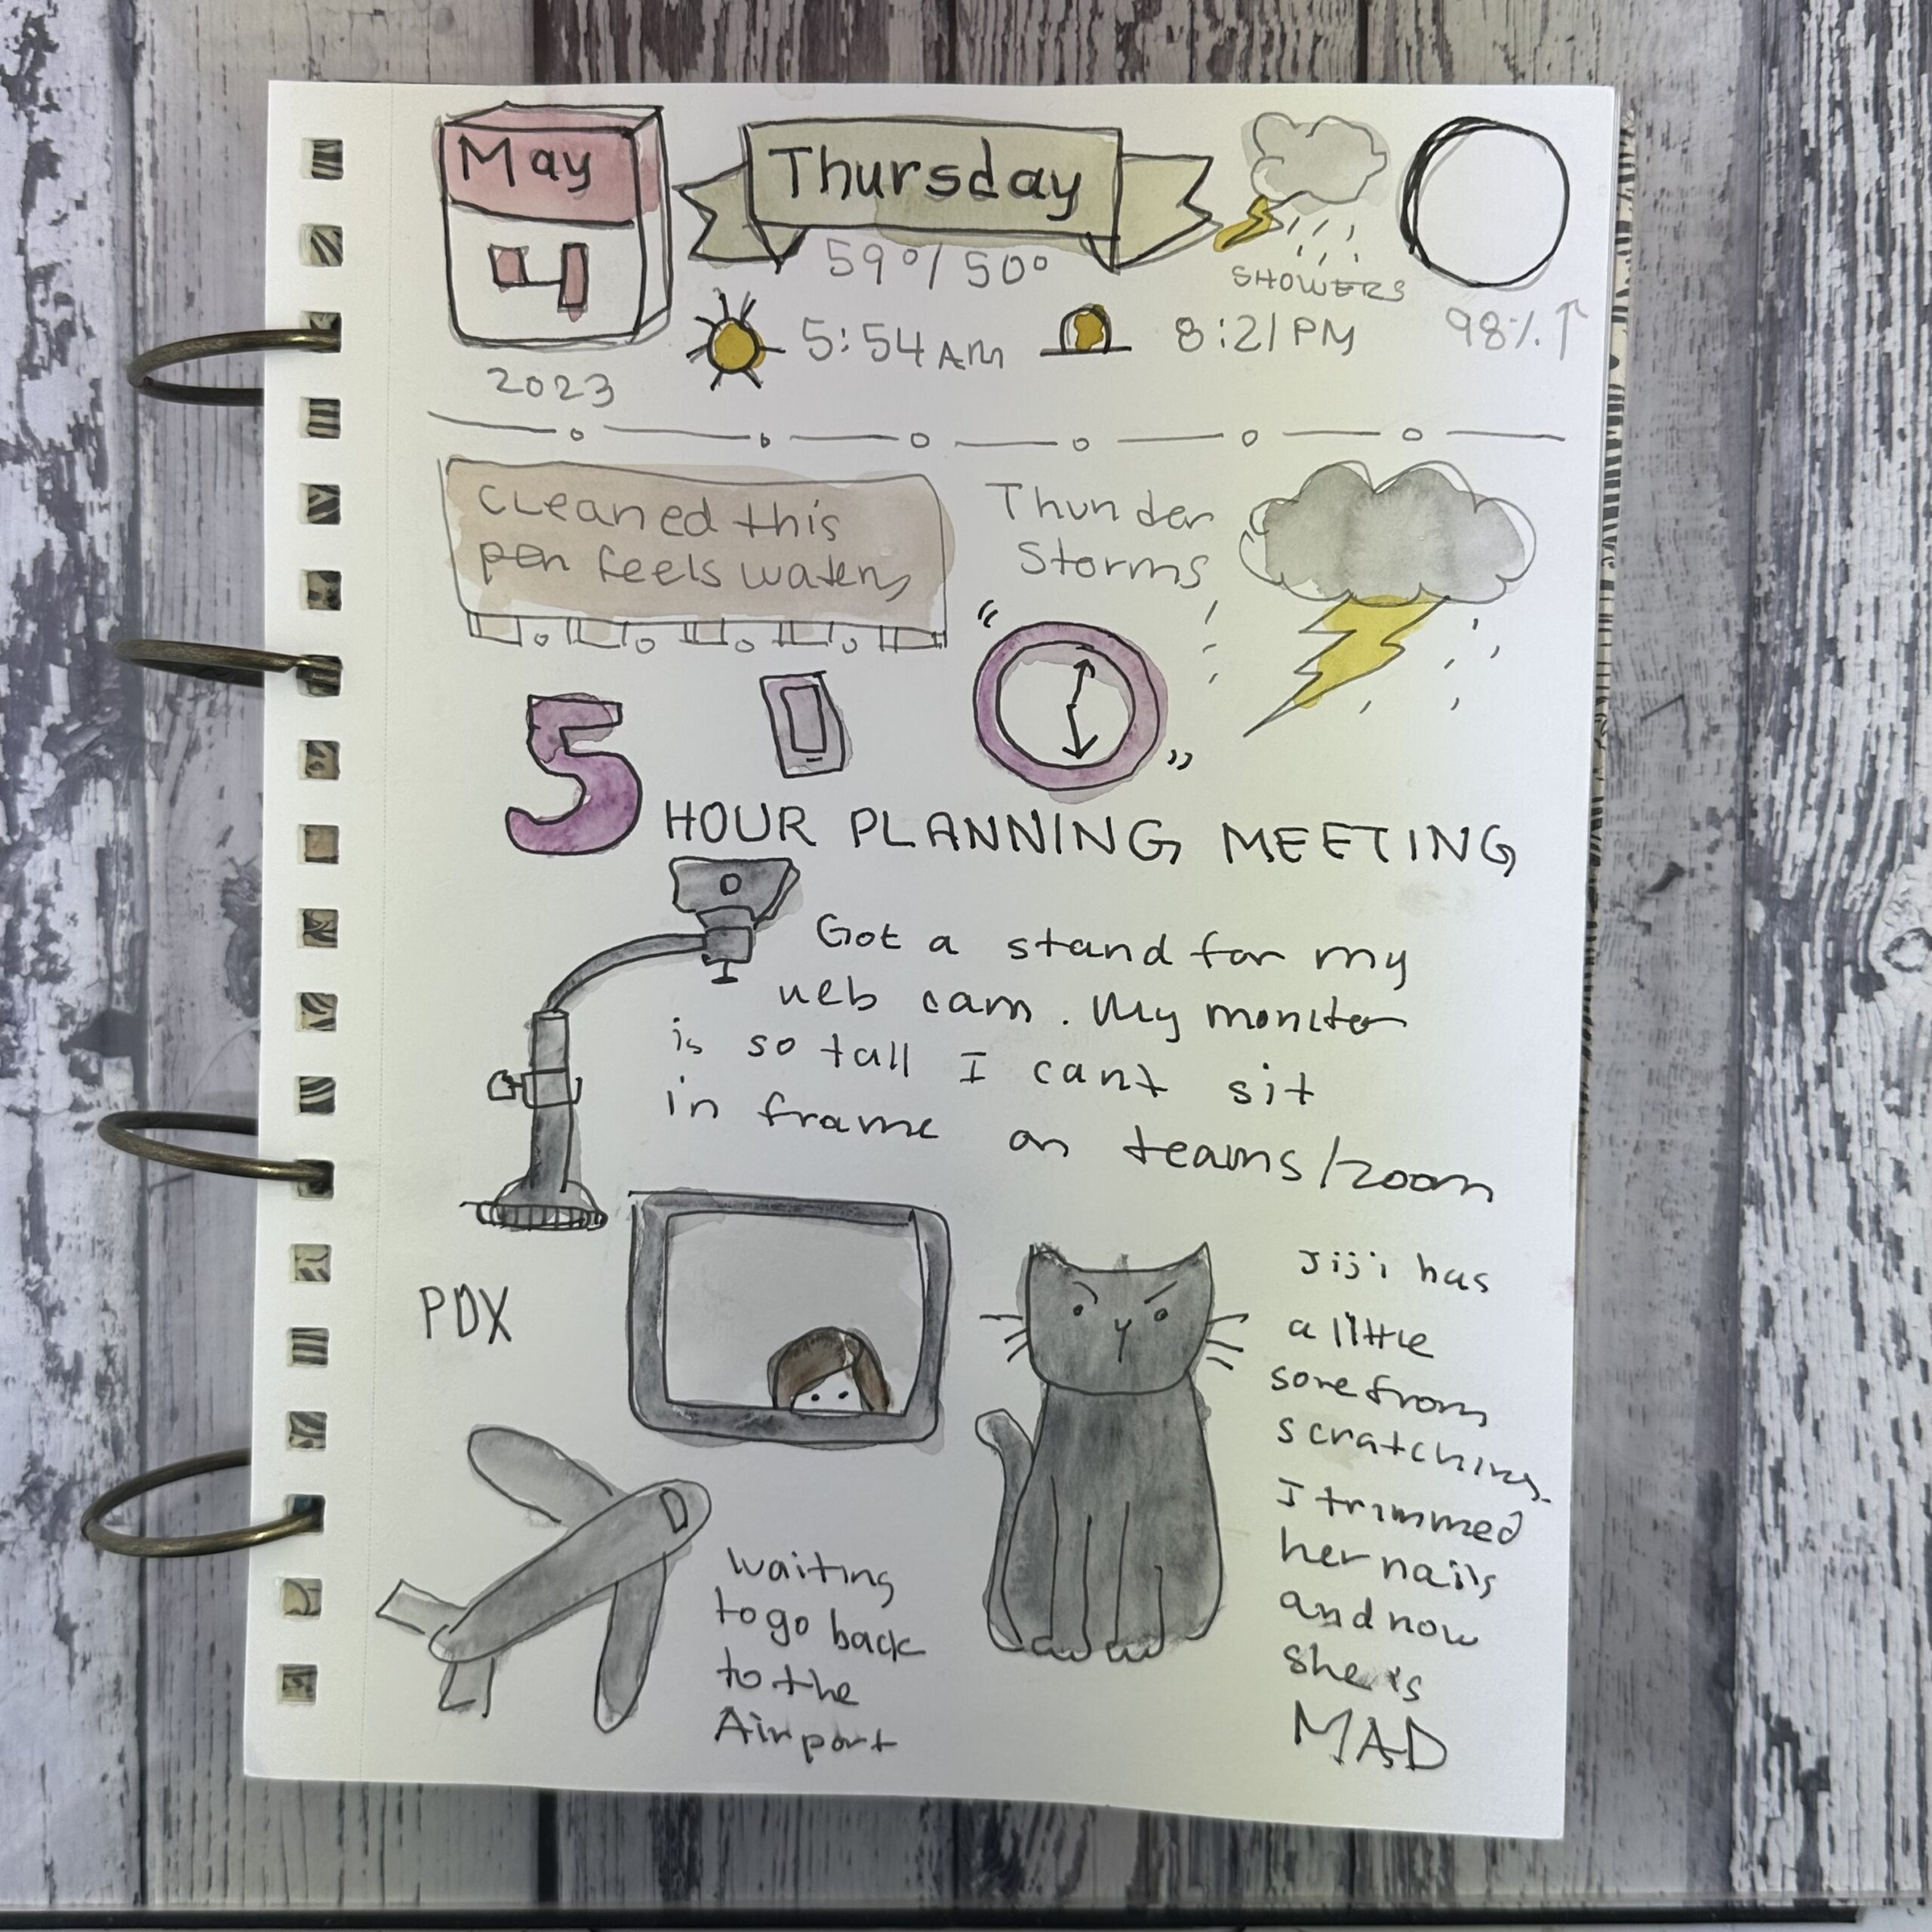 May
4
2023
Thursday
59°/50°
SHOWERS
5:54 AM
8:21 PM
98%↑
Cleaned this
pen feels watery
Thunder
Storms
5 HOUR PLANNING MEETING
Got a stand for my
web cam. My monitor
is so tall I cant sit
in frame on teams/zoom
PDX
waiting
to go back
to the
Airport
Jiji has
a little
sore from
scratching.
I trimmed
her nails
and now
she is
MAD